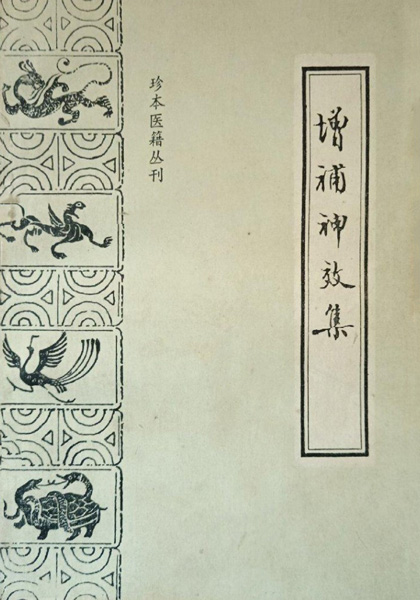 增补神效集
珍本医籍丛刊